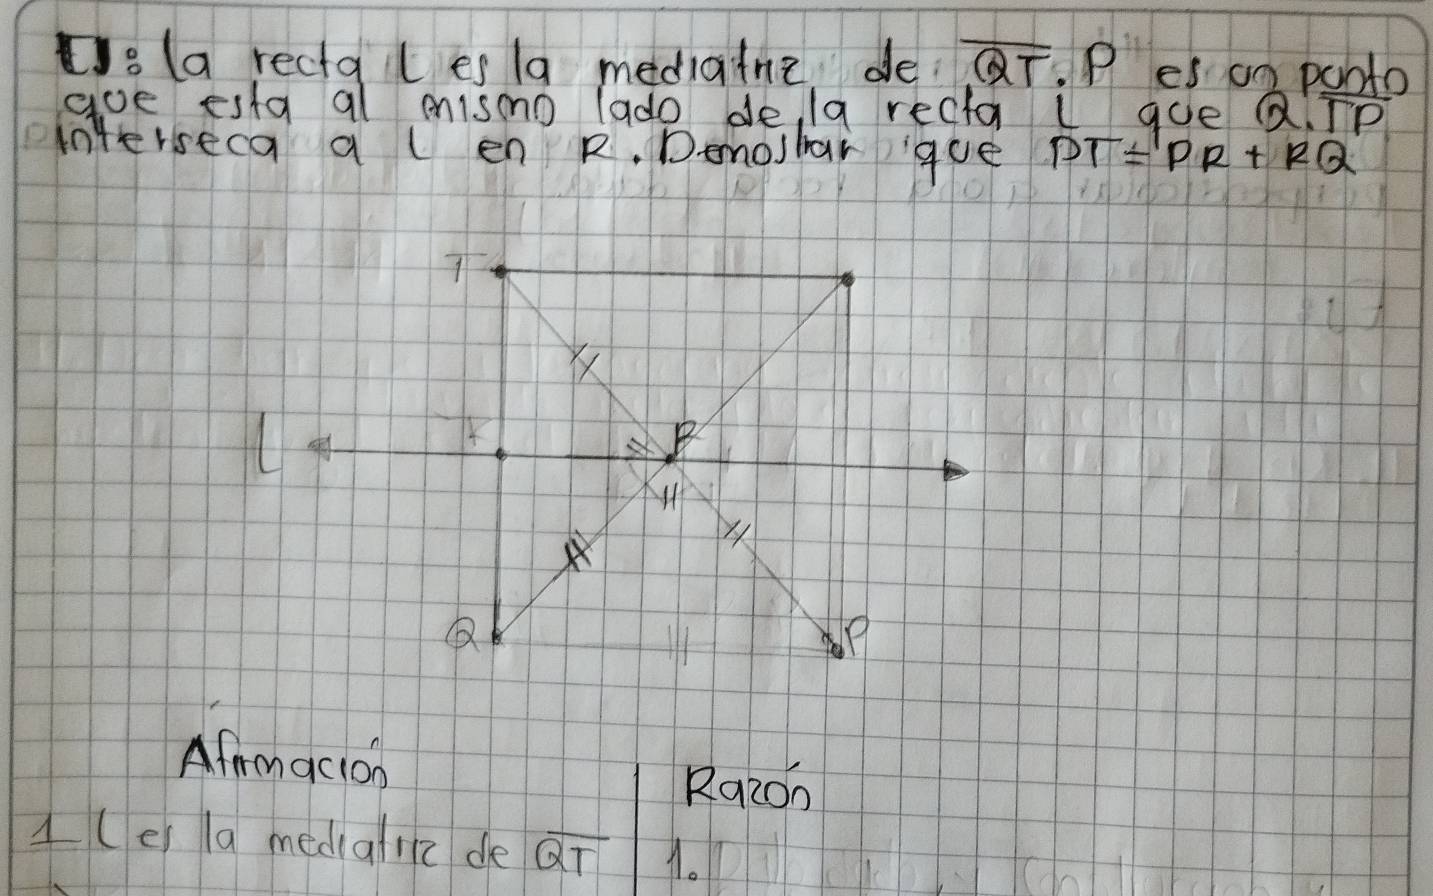 la recta L es la mediatriz de QT. P es un punto
que esta al mismo lado de la recta L que Q. TP
interseca a L en R. Demostrar que PT = PR + RQ
T
R
L
Q
P
Afirmación
Razón
1 L es la mediatriz de QT
1.